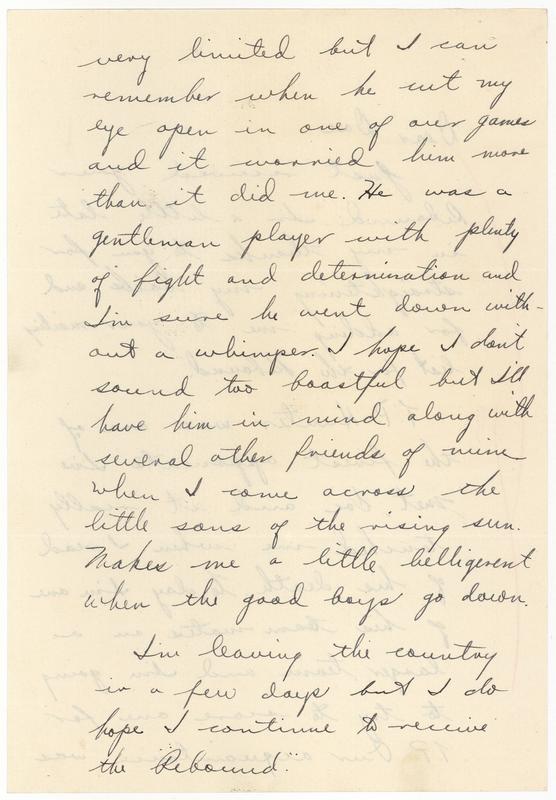 very limited but I can
remember when he cut my
eye open in one of our games
and it worried him more
than it did me. He was a
gentleman player with plenty
of fight and determination and
I'm sure he went down with-
out a whimper. I hope I don't
sound too boastful but I'll
have him in mind along with
several other friends of mine
when I come across the
little sons of the rising sun.
Makes me a little belligerent
when the good boys go down.
I'm leaving the country
in a few days but I do
hope I continue to receive
the "Rebound."